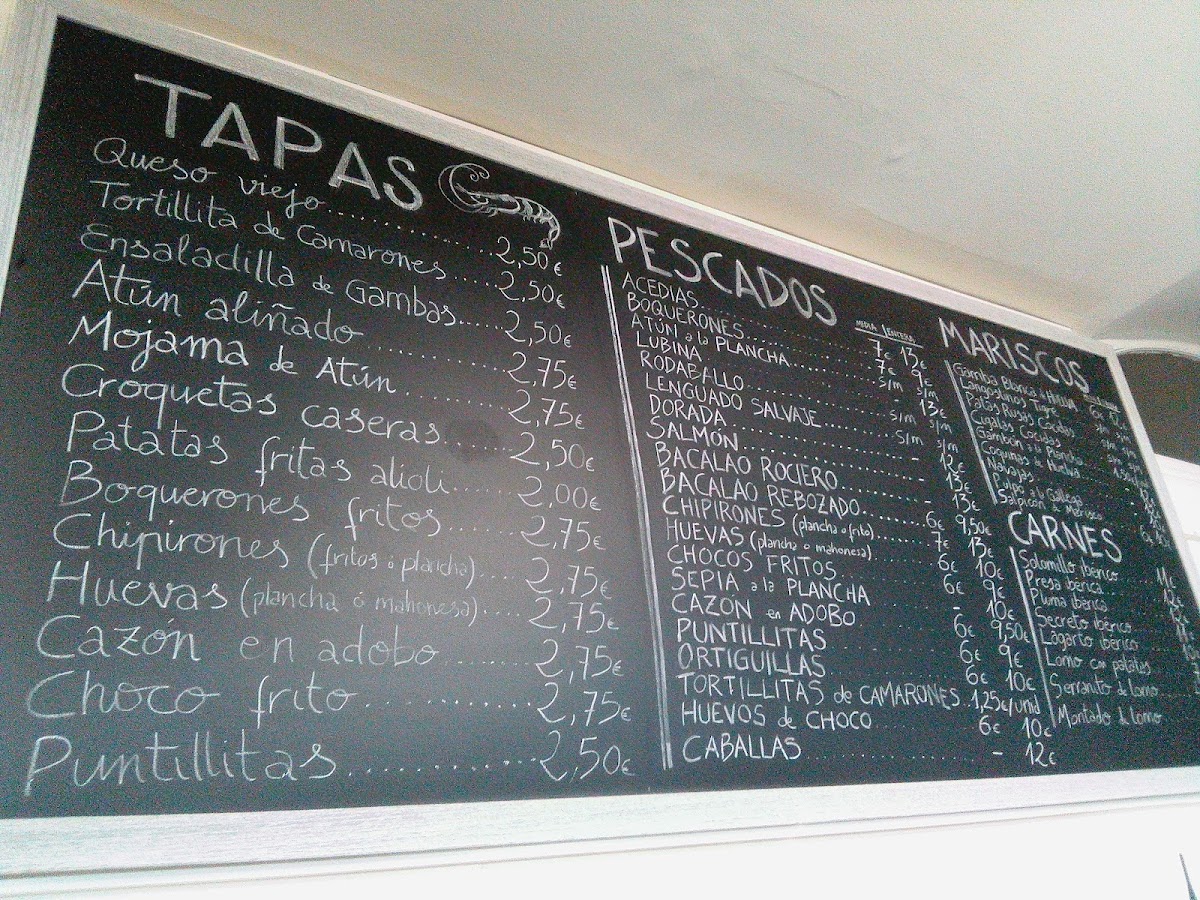 TAPAS
Queso viejo..........2,50€
Tortillita de Camarones....2,50€
Ensaladilla de Gambas.....2,50€
Atún aliñado..........2,75€
Mojama de Atún..........2,75€
Croquetas caseras.....2,50€
Patatas fritas alioli.....2,00€
Boquerones fritos.....2,75€
Chipirones (fritos ó plancha)....2,75€
Huevas (plancha ó mahonesa)....2,75€
Cazón en adobo.......2,75€
Choco frito..........2,75€
Puntillitas..........2,50€
PESCADOS
MEDIA ENTERA
ACEDIAS..........7€ 13€
BOQUERONES..........7€ 9€
ATÚN a la PLANCHA.....s/m s/m
LUBINA..........- 13€
RODABALLO..........s/m s/m
LENGUADO SALVAJE.....s/m s/m
DORADA..........- 12€
SALMÓN..........- 13€
BACALAO ROCIERO.....- 13€
BACALAO REBOZADO.....6€ 9,50€
CHIPIRONES (plancha o frito).....7€ 13€
HUEVAS (plancha o mahonesa).....6€ 10€
CHOCOS FRITOS.....6€ 9€
SEPIA a la PLANCHA.....- 10€
CAZÓN en ADOBO.....6€ 9,50€
PUNTILLITAS.....6€ 9€
ORTIGUILLAS.....6€ 10€
TORTILLITAS de CAMARONES..1,25€/und
HUEVOS de CHOCO.....6€ 10€
CABALLAS..........- 12€
MARISCOS
Gamba Blanca de HUELVA
Langostinos Tigre
Patas Rusas Cocidas
Cigalas Cocidas
Gambón a la Plancha
Coquinas de Huelva
Navajas
Pulpo a la Gallega
Salpicón de Marisco
CARNES
Solomillo ibérico.....11€
Presa ibérica
Pluma ibérica
Secreto ibérico
Lagarto ibérico
Lomo con patatas
Serranito de lomo
Montado de lomo